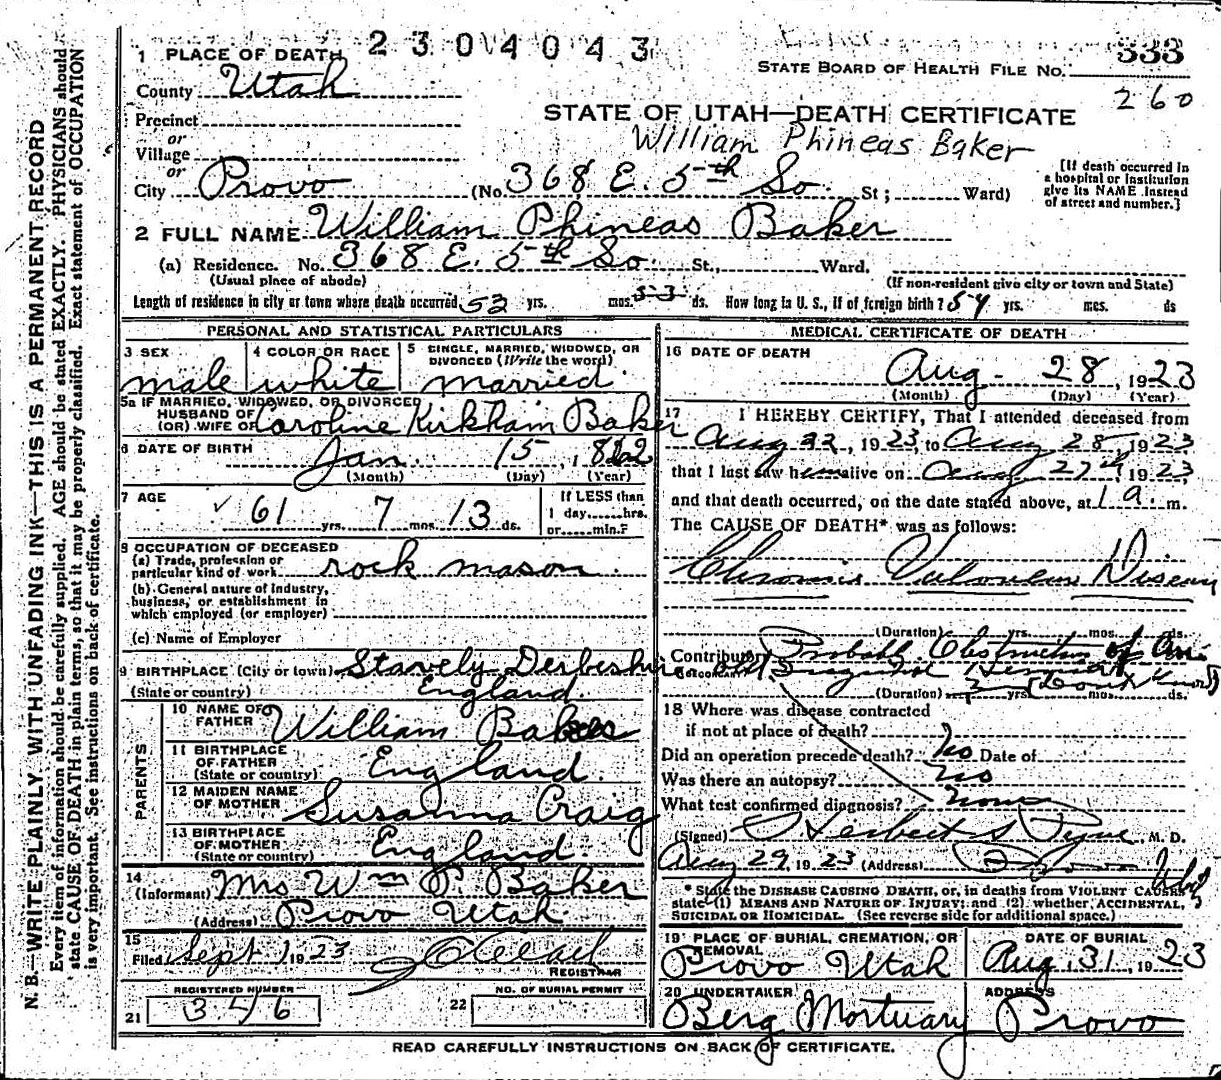 2304043
1 PLACE OF DEATH
STATE BOARD OF HEALTH FILE No. 333
260
County Utah
STATE OF UTAH—DEATH CERTIFICATE
Precinct
William Phineas Baker
or
Village
or
City Provo (No. 368 E. 5th So. St; Ward)
[If death occurred in a hospital or institution give its NAME instead of street and number.]
2 FULL NAME William Phineas Baker
(a) Residence. No. 368 E. 5th So. St., Ward.
(Usual place of abode) (If non-resident give city or town and State)
Length of residence in city or town where death occurred 53 yrs. mos. ds. How long in U. S., if of foreign birth? 54 yrs. mos. ds
PERSONAL AND STATISTICAL PARTICULARS
3 SEX male
4 COLOR OR RACE white
5 SINGLE, MARRIED, WIDOWED, OR DIVORCED (Write the word) married
5a IF MARRIED, WIDOWED, OR DIVORCED
HUSBAND OF
(OR) WIFE OF Caroline Kirkham Baker
6 DATE OF BIRTH Jan. 15, 1862
(Month) (Day) (Year)
7 AGE 61 yrs. 7 mos. 13 ds.
If LESS than
1 day, hrs.
or min.?
8 OCCUPATION OF DECEASED
(a) Trade, profession or
particular kind of work rock mason.
(b) General nature of Industry,
business, or establishment in
which employed (or employer)
(c) Name of Employer
9 BIRTHPLACE (City or town) Stavely Derbeshire
(State or country) England.
PARENTS
10 NAME OF
FATHER William Baker
11 BIRTHPLACE
OF FATHER
(State or country) England.
12 MAIDEN NAME
OF MOTHER Susanna Craig
13 BIRTHPLACE
OF MOTHER
(State or country) England.
14
(Informant) Mrs Wm P. Baker
(Address) Provo Utah.
15
Filed Sept 1 1923
REGISTRAR
REGISTERED NUMBER
21 346
NO. OF BURIAL PERMIT
22
MEDICAL CERTIFICATE OF DEATH
16 DATE OF DEATH
Aug 28, 1923
(Month) (Day) (Year)
17 I HEREBY CERTIFY, That I attended deceased from
Aug 22, 1923, to Aug 28, 1923
that I last saw him alive on Aug 27th, 1923,
and that death occurred, on the date stated above, at 1 a. m.
The CAUSE OF DEATH* was as follows:
Chronic Valvular Disease
(Duration) yrs. mos. ds.
Contributory Probable Obstruction of
(Duration) yrs. mos. ds.
18 Where was disease contracted
if not at place of death?
Did an operation precede death? No Date of
Was there an autopsy? No
What test confirmed diagnosis? None
(Signed) Herbert S Pyne, M. D.
Aug 29, 1923 (Address) Provo Utah
* State the DISEASE CAUSING DEATH, or, in deaths from VIOLENT CAUSES,
state (1) MEANS AND NATURE OF INJURY; and (2) whether ACCIDENTAL,
SUICIDAL OR HOMICIDAL. (See reverse side for additional space.)
19 PLACE OF BURIAL, CREMATION, OR
REMOVAL
Provo Utah
DATE OF BURIAL
Aug. 31, 1923
20 UNDERTAKER
Berg Mortuary
ADDRESS
Provo
READ CAREFULLY INSTRUCTIONS ON BACK OF CERTIFICATE.
N. B.—WRITE PLAINLY WITH UNFADING INK—THIS IS A PERMANENT RECORD
Every item of information should be carefully supplied. AGE should be stated EXACTLY. PHYSICIANS should
state CAUSE OF DEATH in plain terms, so that it may be properly classified. Exact statement of OCCUPATION
is very important. See instructions on back of certificate.